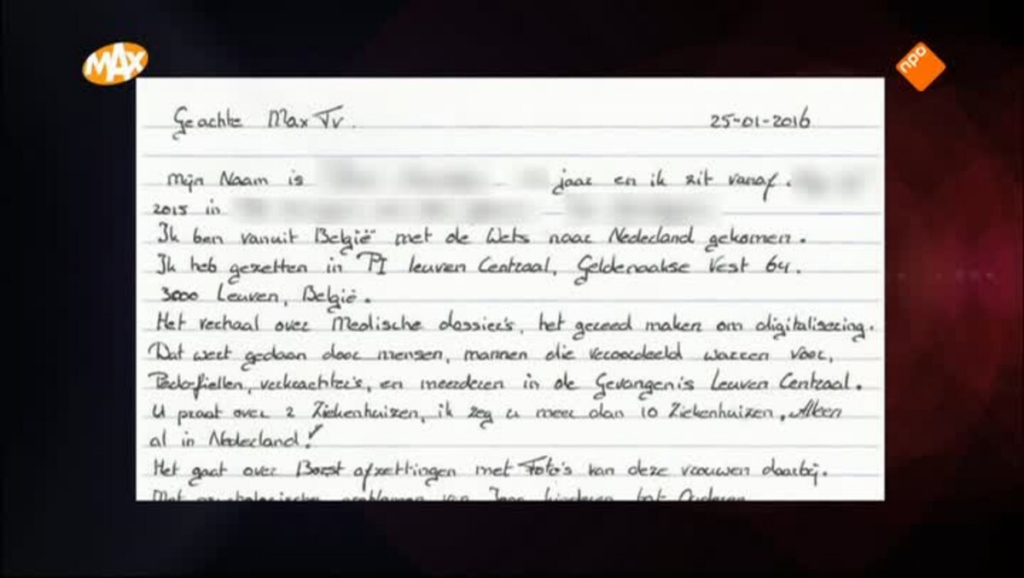 MAX
npo
Geachte Max Tv.
25-01-2016
Mijn Naam is jaar en ik zit vanaf.
2015 in
Ik ben vanuit België met de Wets naar Nederland gekomen.
Ik heb gezetten in PI leuven Centraal, Geldenaakse Vest 64.
3000 Leuven, België.
Het verhaal over Medische dossier's, het gereed maken om digitalisering.
Dat wert gedaan door mensen, mannen die veroordeeld warren voor,
Pedofiellen, verkrachter's, en meerderen in de Gevangenis Leuven Centraal.
U praat over 2 Ziekenhuizen, ik zeg u meer dan 10 Ziekenhuizen, Alleen
al in Nederland!
Het gaat over Borst afzettingen met Foto's van deze vrouwen daarbij.